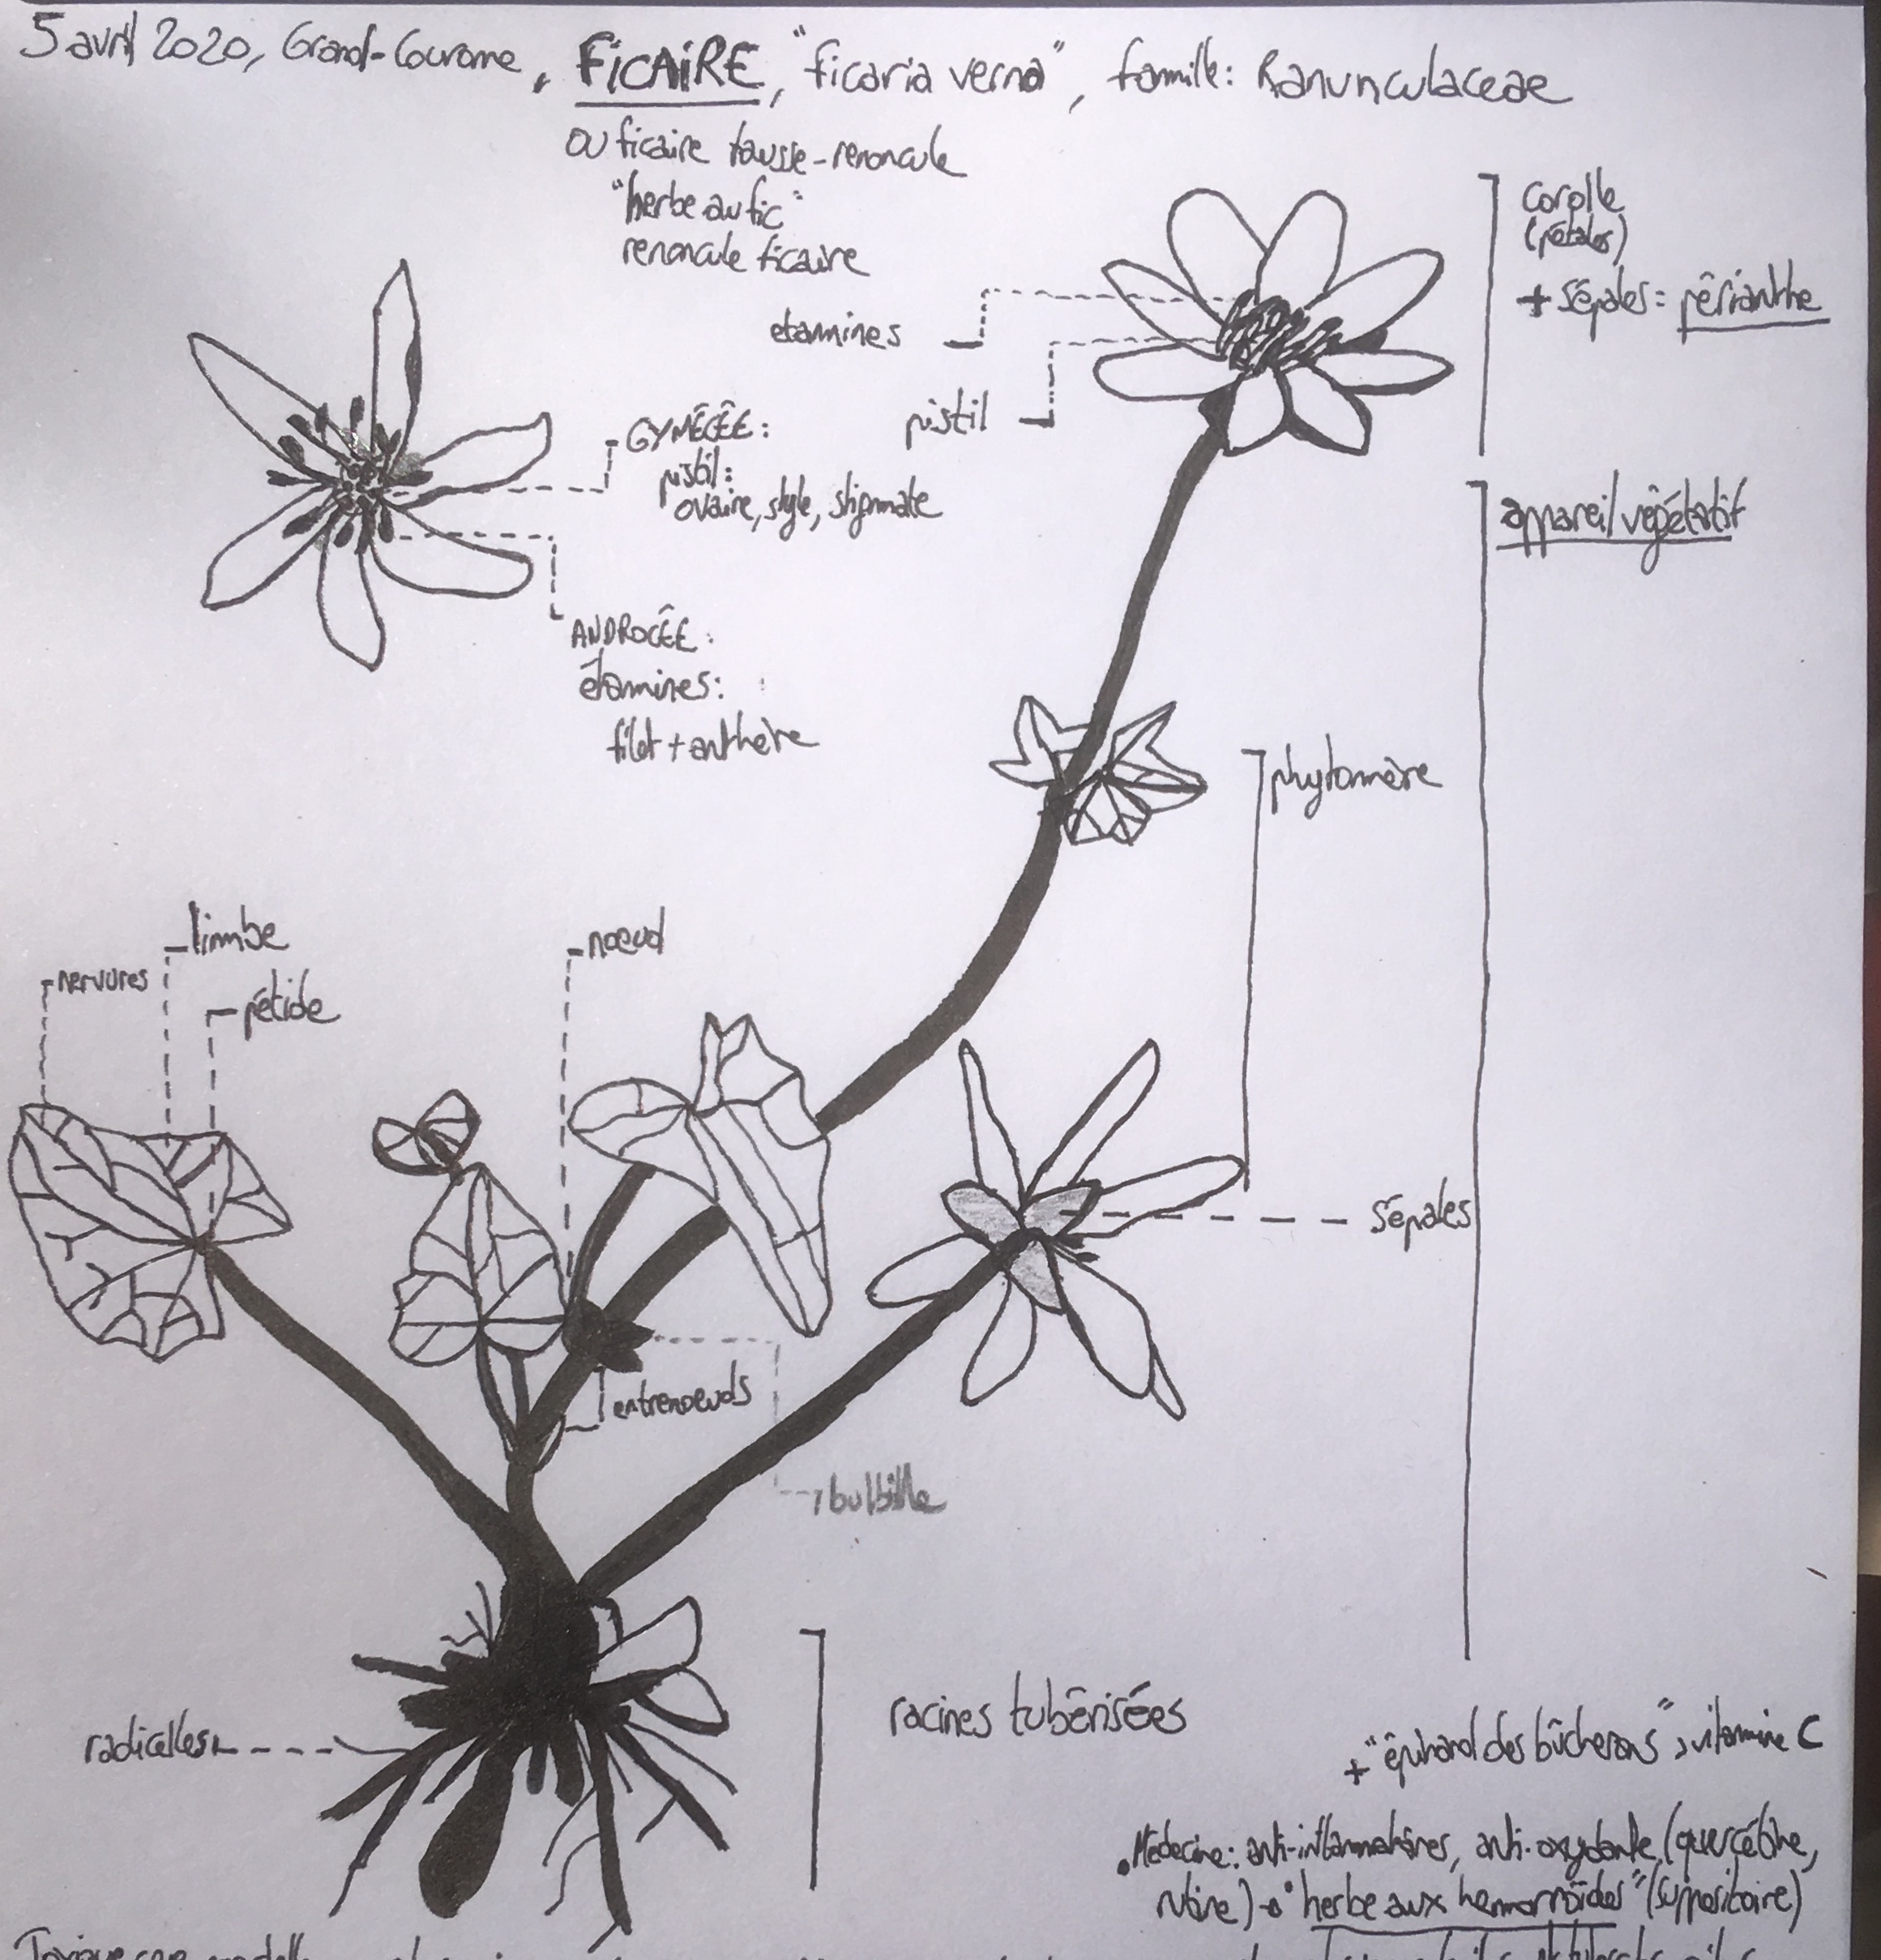 5 avril 2020, Grand-Couronne, FiCAiRE, "ficaria verna", famille: Ranunculaceae
ou ficaire fausse-renoncule
"herbe au fic"
renoncule ficaire
corolle
(pétales)
+ sépales: périanthe
etamines
pistil
GYNÉCÉE:
pistil:
ovaire, style, stigmate
appareil végétatif
ANDROCÉE:
étamines:
filet + anthère
phytomère
limbe
noeud
nervures
pétiole
sépales
entrenoeuds
bulbille
racines tubérisées
radicelles
+ "épinard des bûcherons", vitamine C
Médecine: anti-inflammatoires, anti-oxydante (quercétine,
rutine) → "herbe aux hémorroïdes" (suppositoire)